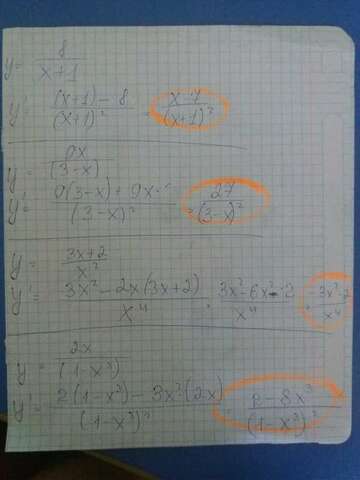 y = 8/(x+1)
y' = ((x+1) - 8)/(x+1)² = (x-7)/(x+1)²
y = 9x/(3-x)
y' = (9(3-x) + 9x)/(3-x)² = 27/(3-x)²
y = (3x+2)/x²
y' = (3x² - 2x(3x+2))/x⁴ = (3x² - 6x² - 2)/x⁴ = (-3x² - 2)/x⁴
y = 2x/(1-x³)
y' = (2(1-x³) - 3x²(2x))/(1-x³)² = (2 - 8x³)/(1-x³)²